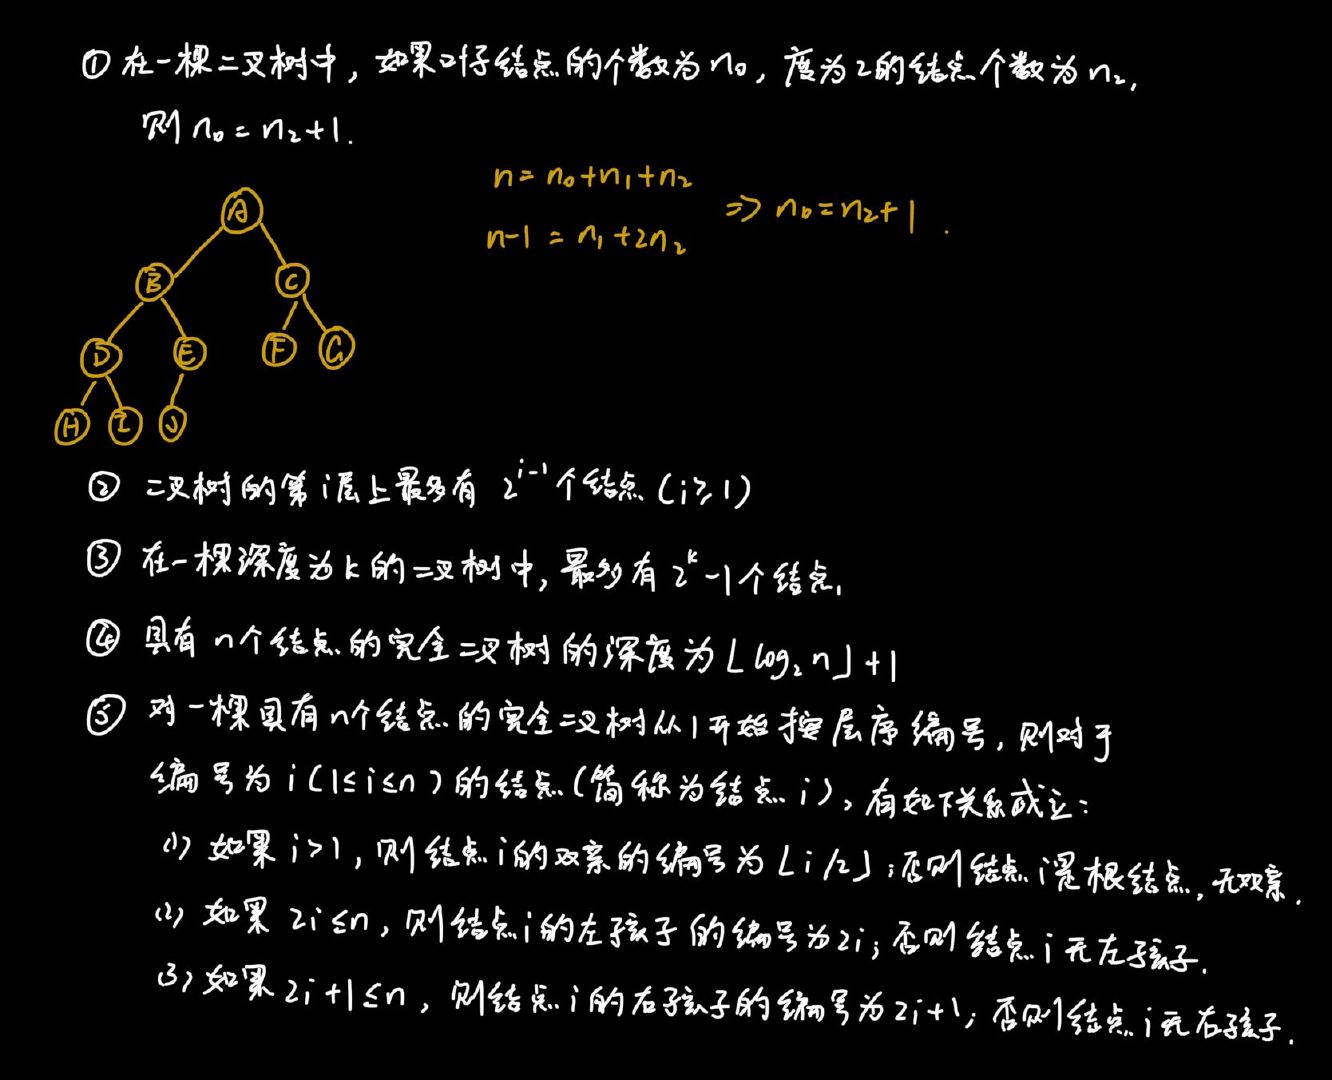 ① 在一棵二叉树中，如果叶子结点的个数为n₀，度为2的结点个数为n₂，
则 n₀=n₂+1.
n=n₀+n₁+n₂
n-1=n₁+2n₂
⇒ n₀=n₂+1.
A
B C
D E F G
H I J
② 二叉树的第i层上最多有 2^(i-1) 个结点（i≥1）
③ 在一棵深度为k的二叉树中，最多有 2^k-1个结点.
④ 具有n个结点的完全二叉树的深度为⌊log₂n⌋+1
⑤ 对一棵具有n个结点的完全二叉树从1开始按层序编号，则对于
编号为i（1≤i≤n）的结点（简称为结点i），有如下关系成立：
(1) 如果i>1，则结点i的双亲的编号为⌊i/2⌋；否则结点i是根结点，无双亲.
(2) 如果2i≤n，则结点i的左孩子的编号为2i；否则结点i无左孩子.
(3) 如果2i+1≤n，则结点i的右孩子的编号为2i+1；否则结点i无右孩子.